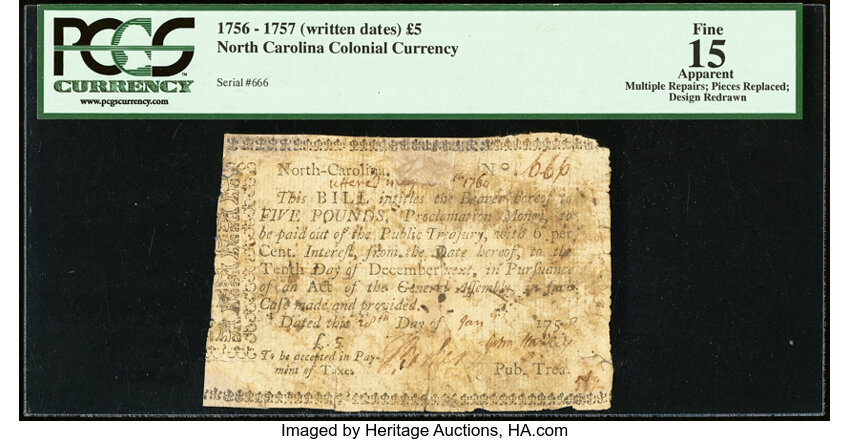 PCGS
CURRENCY
www.pcgscurrency.com
1756 - 1757 (written dates) £5
North Carolina Colonial Currency
Serial #666
Fine
15
Apparent
Multiple Repairs; Pieces Replaced;
Design Redrawn
North-Carolina. No. 666
uttered 1760
This BILL intitles the Bearer hereof to
FIVE POUNDS, Proclamation Money, to
be paid out of the Public Treasury, with 6 per
Cent. Interest, from the Date hereof, to the
Tenth Day of December next, in Pursuance
of an Act of the General Assembly in
Case made and provided.
Dated this Day of Jan 175
£. 5.
To be accepted in Pay-
ment of Taxes
John
Pub. Trea.
Imaged by Heritage Auctions, HA.com